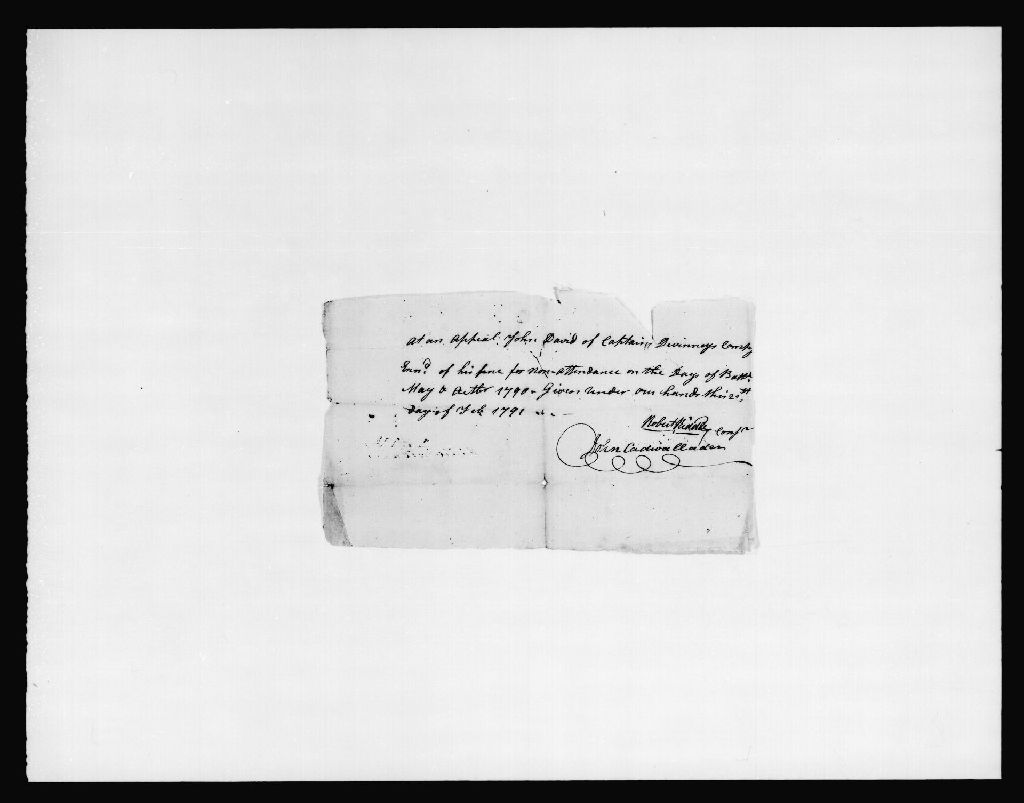 At an Appeal, John David of Captain Dwinneys Compy
of his fine for non-attendance on the Days of Battn.
May & October 1790. Given under our hands this 20th,
Day of Feb. 1791
Robert
John Cadwallader